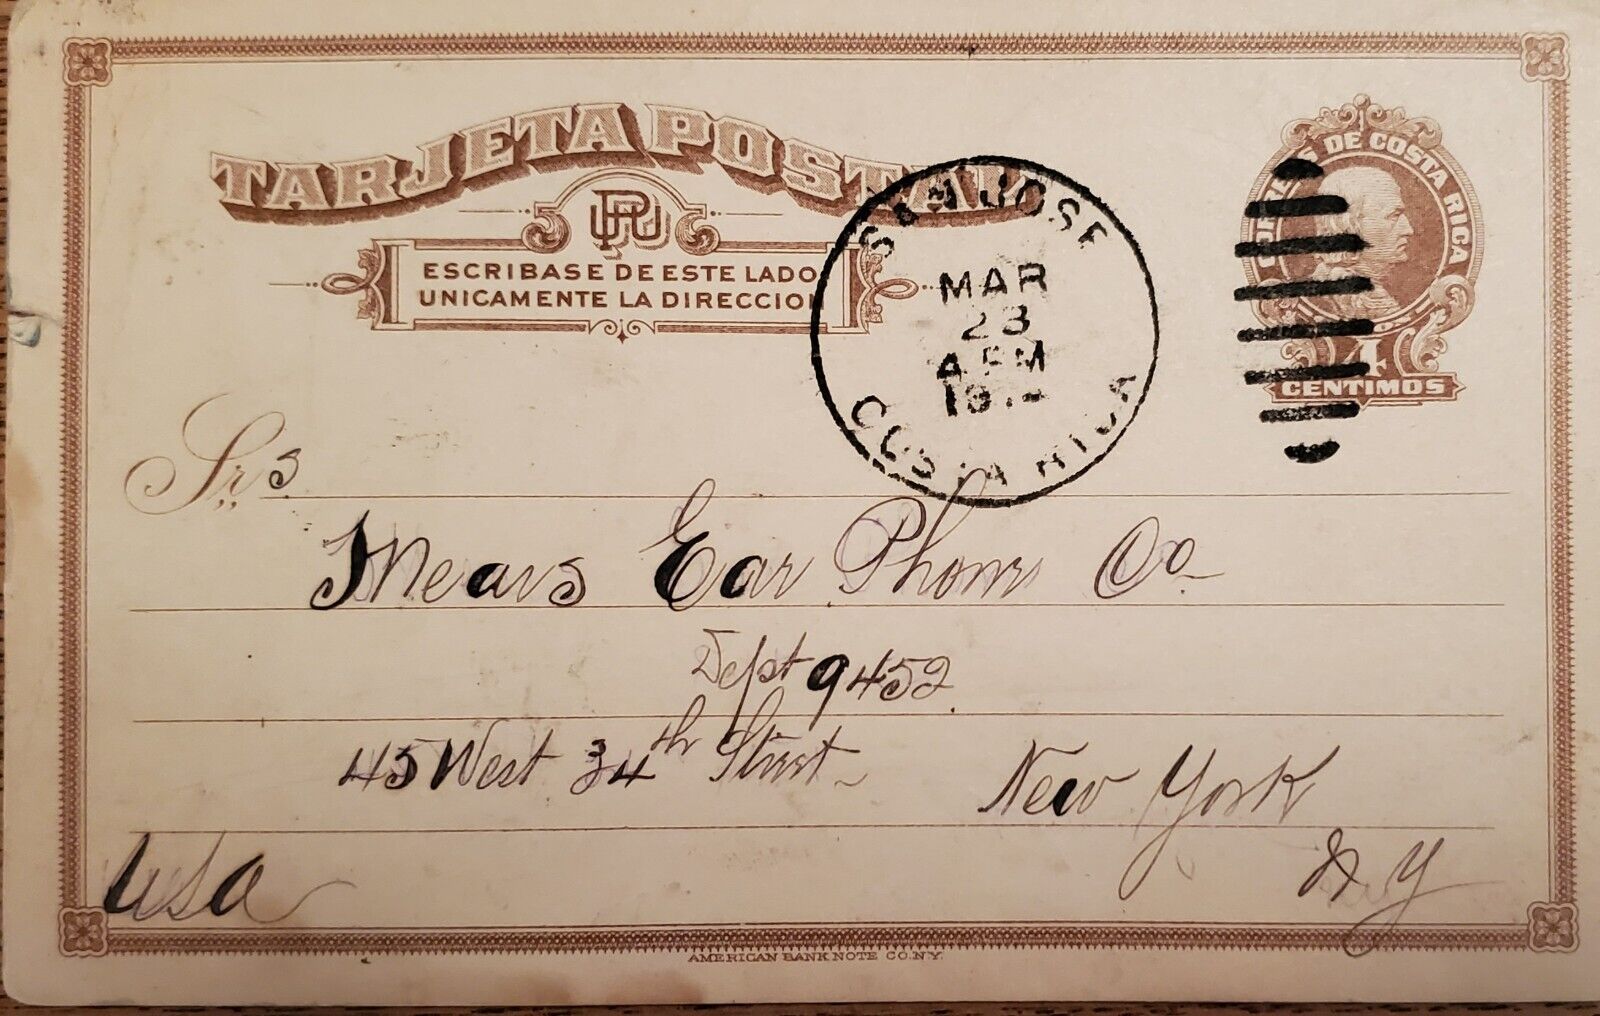 TARJETA POSTAL
UPU
ESCRIBASE DE ESTE LADO
UNICAMENTE LA DIRECCION
SAN JOSE
MAR
23
4 PM
COSTA RICA
CORREOS DE COSTA RICA
4
CENTIMOS
Srs
Mears Ear Phone Co
Dept 9452
45 West 34th Street
New York
N Y
USA
AMERICAN BANK NOTE CO. N.Y.